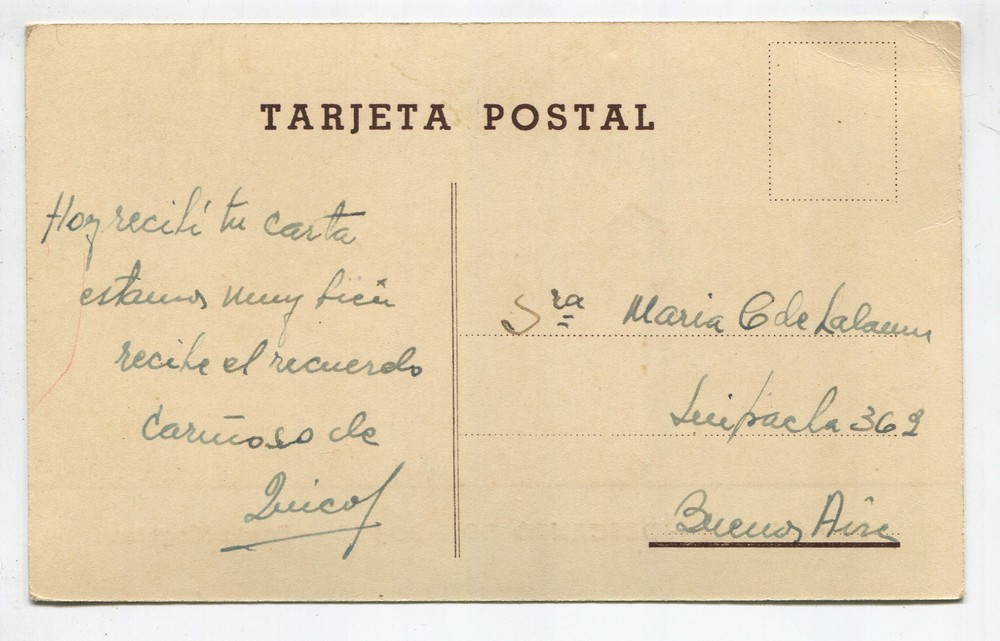 TARJETA POSTAL
Hoy recibí tu carta
estamos muy bien
recibe el recuerdo
cariñoso de
Quico
Sra Maria C de Lalanne
Suipacha 362
Buenos Aires